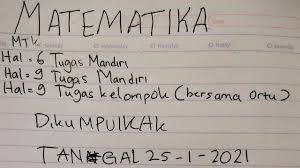 MATEMATIKA
MTK
Hal = 6 Tugas Mandiri
Hal = 9 Tugas Mandiri
Hal = 9 Tugas kelompok (bersama Ortu)
DikUMPUlKAk
TANGGAL 25-1-2021